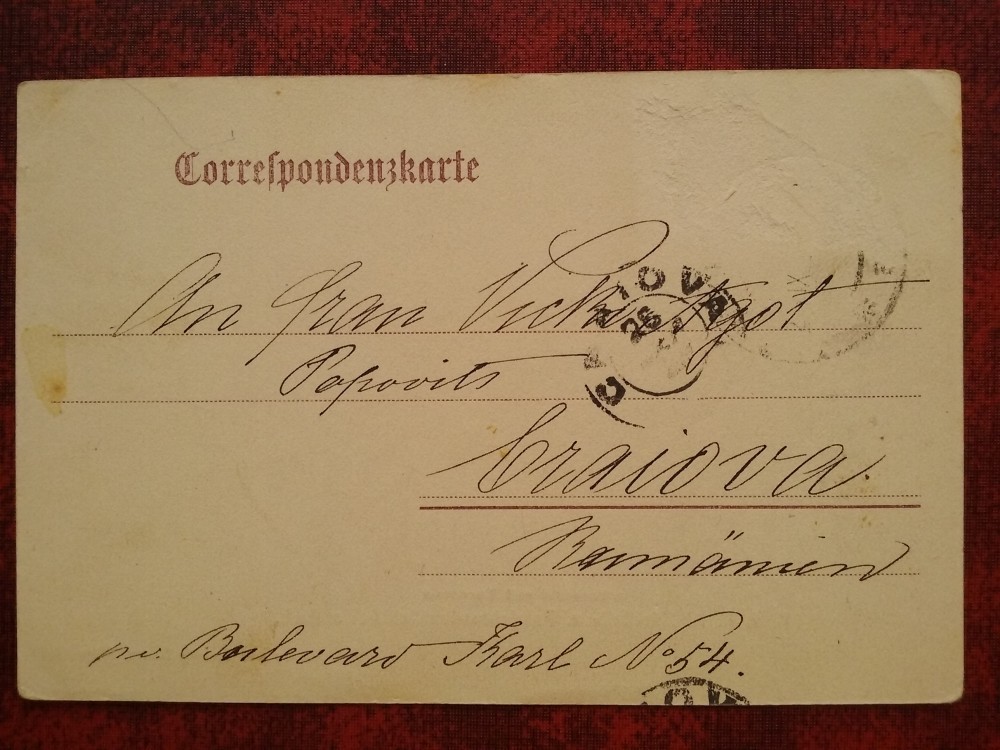 Correspondenzkarte
An Frau
Popovits
CRAIOVA
26
Craiova.
Rumänien
Boulevard Karl No 54.